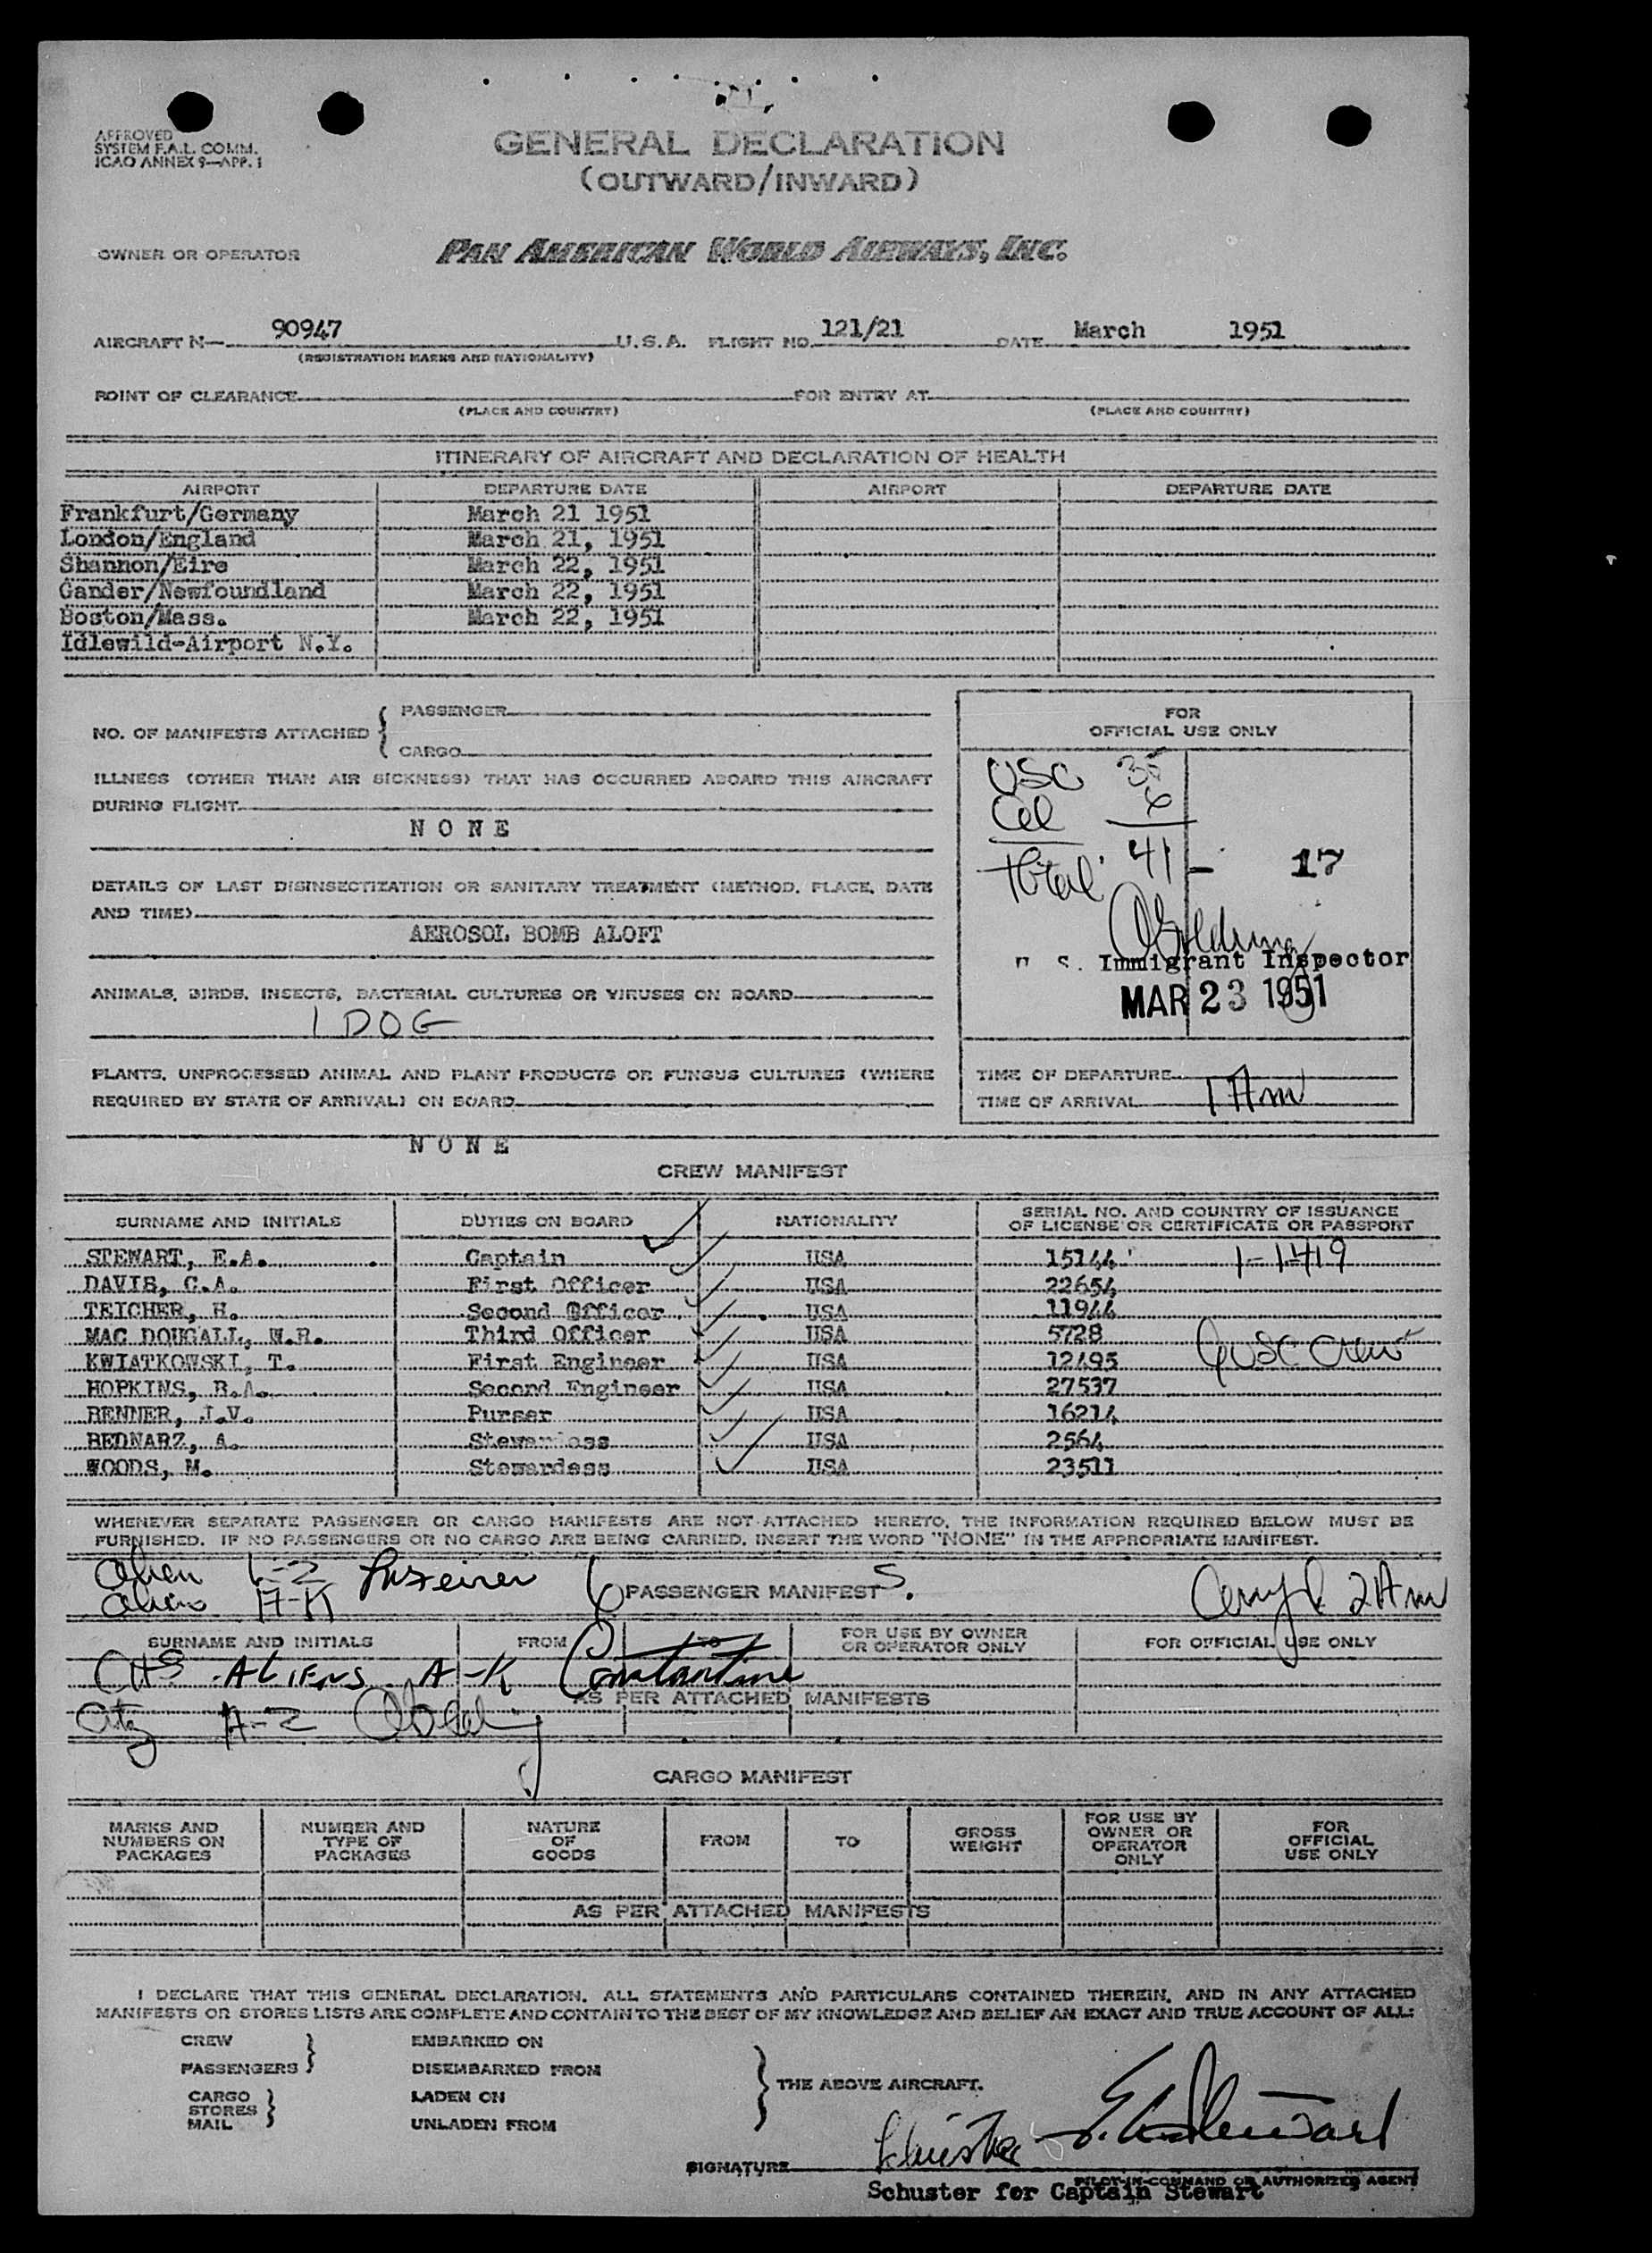 APPROVED
SYSTEM F.A.L. COMM.
ICAO ANNEX 9—APP. 1
GENERAL DECLARATION
(OUTWARD/INWARD)
OWNER OR OPERATOR PAN AMERICAN WORLD AIRWAYS, INC.
AIRCRAFT N— 90947 U.S.A. FLIGHT NO. 121/21 DATE March 1951
(REGISTRATION MARKS AND NATIONALITY)
POINT OF CLEARANCE FOR ENTRY AT
(PLACE AND COUNTRY) (PLACE AND COUNTRY)
ITINERARY OF AIRCRAFT AND DECLARATION OF HEALTH
AIRPORT DEPARTURE DATE AIRPORT DEPARTURE DATE
Frankfurt/Germany March 21 1951
London/England March 21, 1951
Shannon/Eire March 22, 1951
Gander/Newfoundland March 22, 1951
Boston/Mass. March 22, 1951
Idlewild-Airport N.Y.
NO. OF MANIFESTS ATTACHED { PASSENGER
CARGO
ILLNESS (OTHER THAN AIR SICKNESS) THAT HAS OCCURRED ABOARD THIS AIRCRAFT
DURING FLIGHT
N O N E
DETAILS OF LAST DISINSECTIZATION OR SANITARY TREATMENT (METHOD, PLACE, DATE
AND TIME)
AEROSOL BOMB ALOFT
ANIMALS, BIRDS, INSECTS, BACTERIAL CULTURES OR VIRUSES ON BOARD
1 DOG
PLANTS, UNPROCESSED ANIMAL AND PLANT PRODUCTS OR FUNGUS CULTURES (WHERE
REQUIRED BY STATE OF ARRIVAL) ON BOARD
N O N E
FOR
OFFICIAL USE ONLY
USC 35
Cel 6
Total 41 - 17
U. S. Immigrant Inspector
MAR 23 1951
TIME OF DEPARTURE
TIME OF ARRIVAL 1 Am
CREW MANIFEST
SURNAME AND INITIALS DUTIES ON BOARD NATIONALITY SERIAL NO. AND COUNTRY OF ISSUANCE
OF LICENSE OR CERTIFICATE OR PASSPORT
STEWART, E.A. Captain USA 15144 1-1419
DAVIS, C.A. First Officer USA 22654
TEICHER, H. Second Officer USA 11944
MAC DOUGALL, W.R. Third Officer USA 5728
KWIATKOWSKI, T. First Engineer USA 12495 9 USC Crew
HOPKINS, R.A. Second Engineer USA 27537
RENNER, J.V. Purser USA 16214
BEDNARZ, A. Stewardess USA 2564
WOODS, M. Stewardess USA 23511
WHENEVER SEPARATE PASSENGER OR CARGO MANIFESTS ARE NOT ATTACHED HERETO, THE INFORMATION REQUIRED BELOW MUST BE
FURNISHED. IF NO PASSENGERS OR NO CARGO ARE BEING CARRIED, INSERT THE WORD "NONE" IN THE APPROPRIATE MANIFEST.
Alien L-Z
Alien A-K
6 PASSENGER MANIFESTS. 2 Am
SURNAME AND INITIALS FROM TO FOR USE BY OWNER
OR OPERATOR ONLY FOR OFFICIAL USE ONLY
ALIENS A-K Constantine
AS PER ATTACHED MANIFESTS
Citz A-Z
CARGO MANIFEST
MARKS AND
NUMBERS ON
PACKAGES
NUMBER AND
TYPE OF
PACKAGES
NATURE
OF
GOODS
FROM
TO
GROSS
WEIGHT
FOR USE BY
OWNER OR
OPERATOR
ONLY
FOR
OFFICIAL
USE ONLY
AS PER ATTACHED MANIFESTS
I DECLARE THAT THIS GENERAL DECLARATION, ALL STATEMENTS AND PARTICULARS CONTAINED THEREIN, AND IN ANY ATTACHED
MANIFESTS OR STORES LISTS ARE COMPLETE AND CONTAIN TO THE BEST OF MY KNOWLEDGE AND BELIEF AN EXACT AND TRUE ACCOUNT OF ALL:
CREW EMBARKED ON
PASSENGERS DISEMBARKED FROM
THE ABOVE AIRCRAFT.
CARGO LADEN ON
STORES
MAIL UNLADEN FROM
SIGNATURE Schuster E. A. Stewart
PILOT-IN-COMMAND OR AUTHORIZED AGENT
Schuster for Captain Stewart